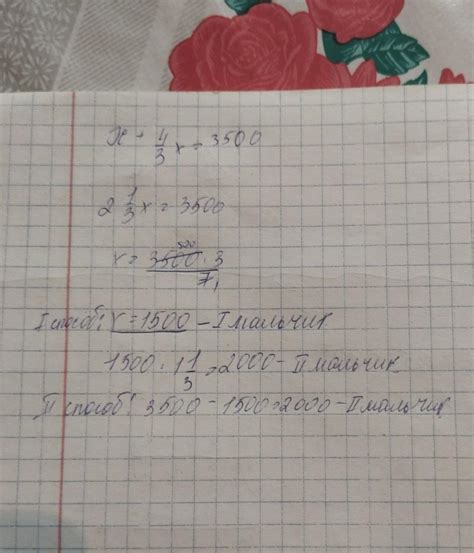 x + 4/3 x = 3500
2 1/3 x = 3500
x = 3500 · 3 / 7
500 1
I способ: x = 1500 – I мальчик
1500 · 1 1/3 = 2000 – II мальчик
II способ: 3500 – 1500 = 2000 – II мальчик